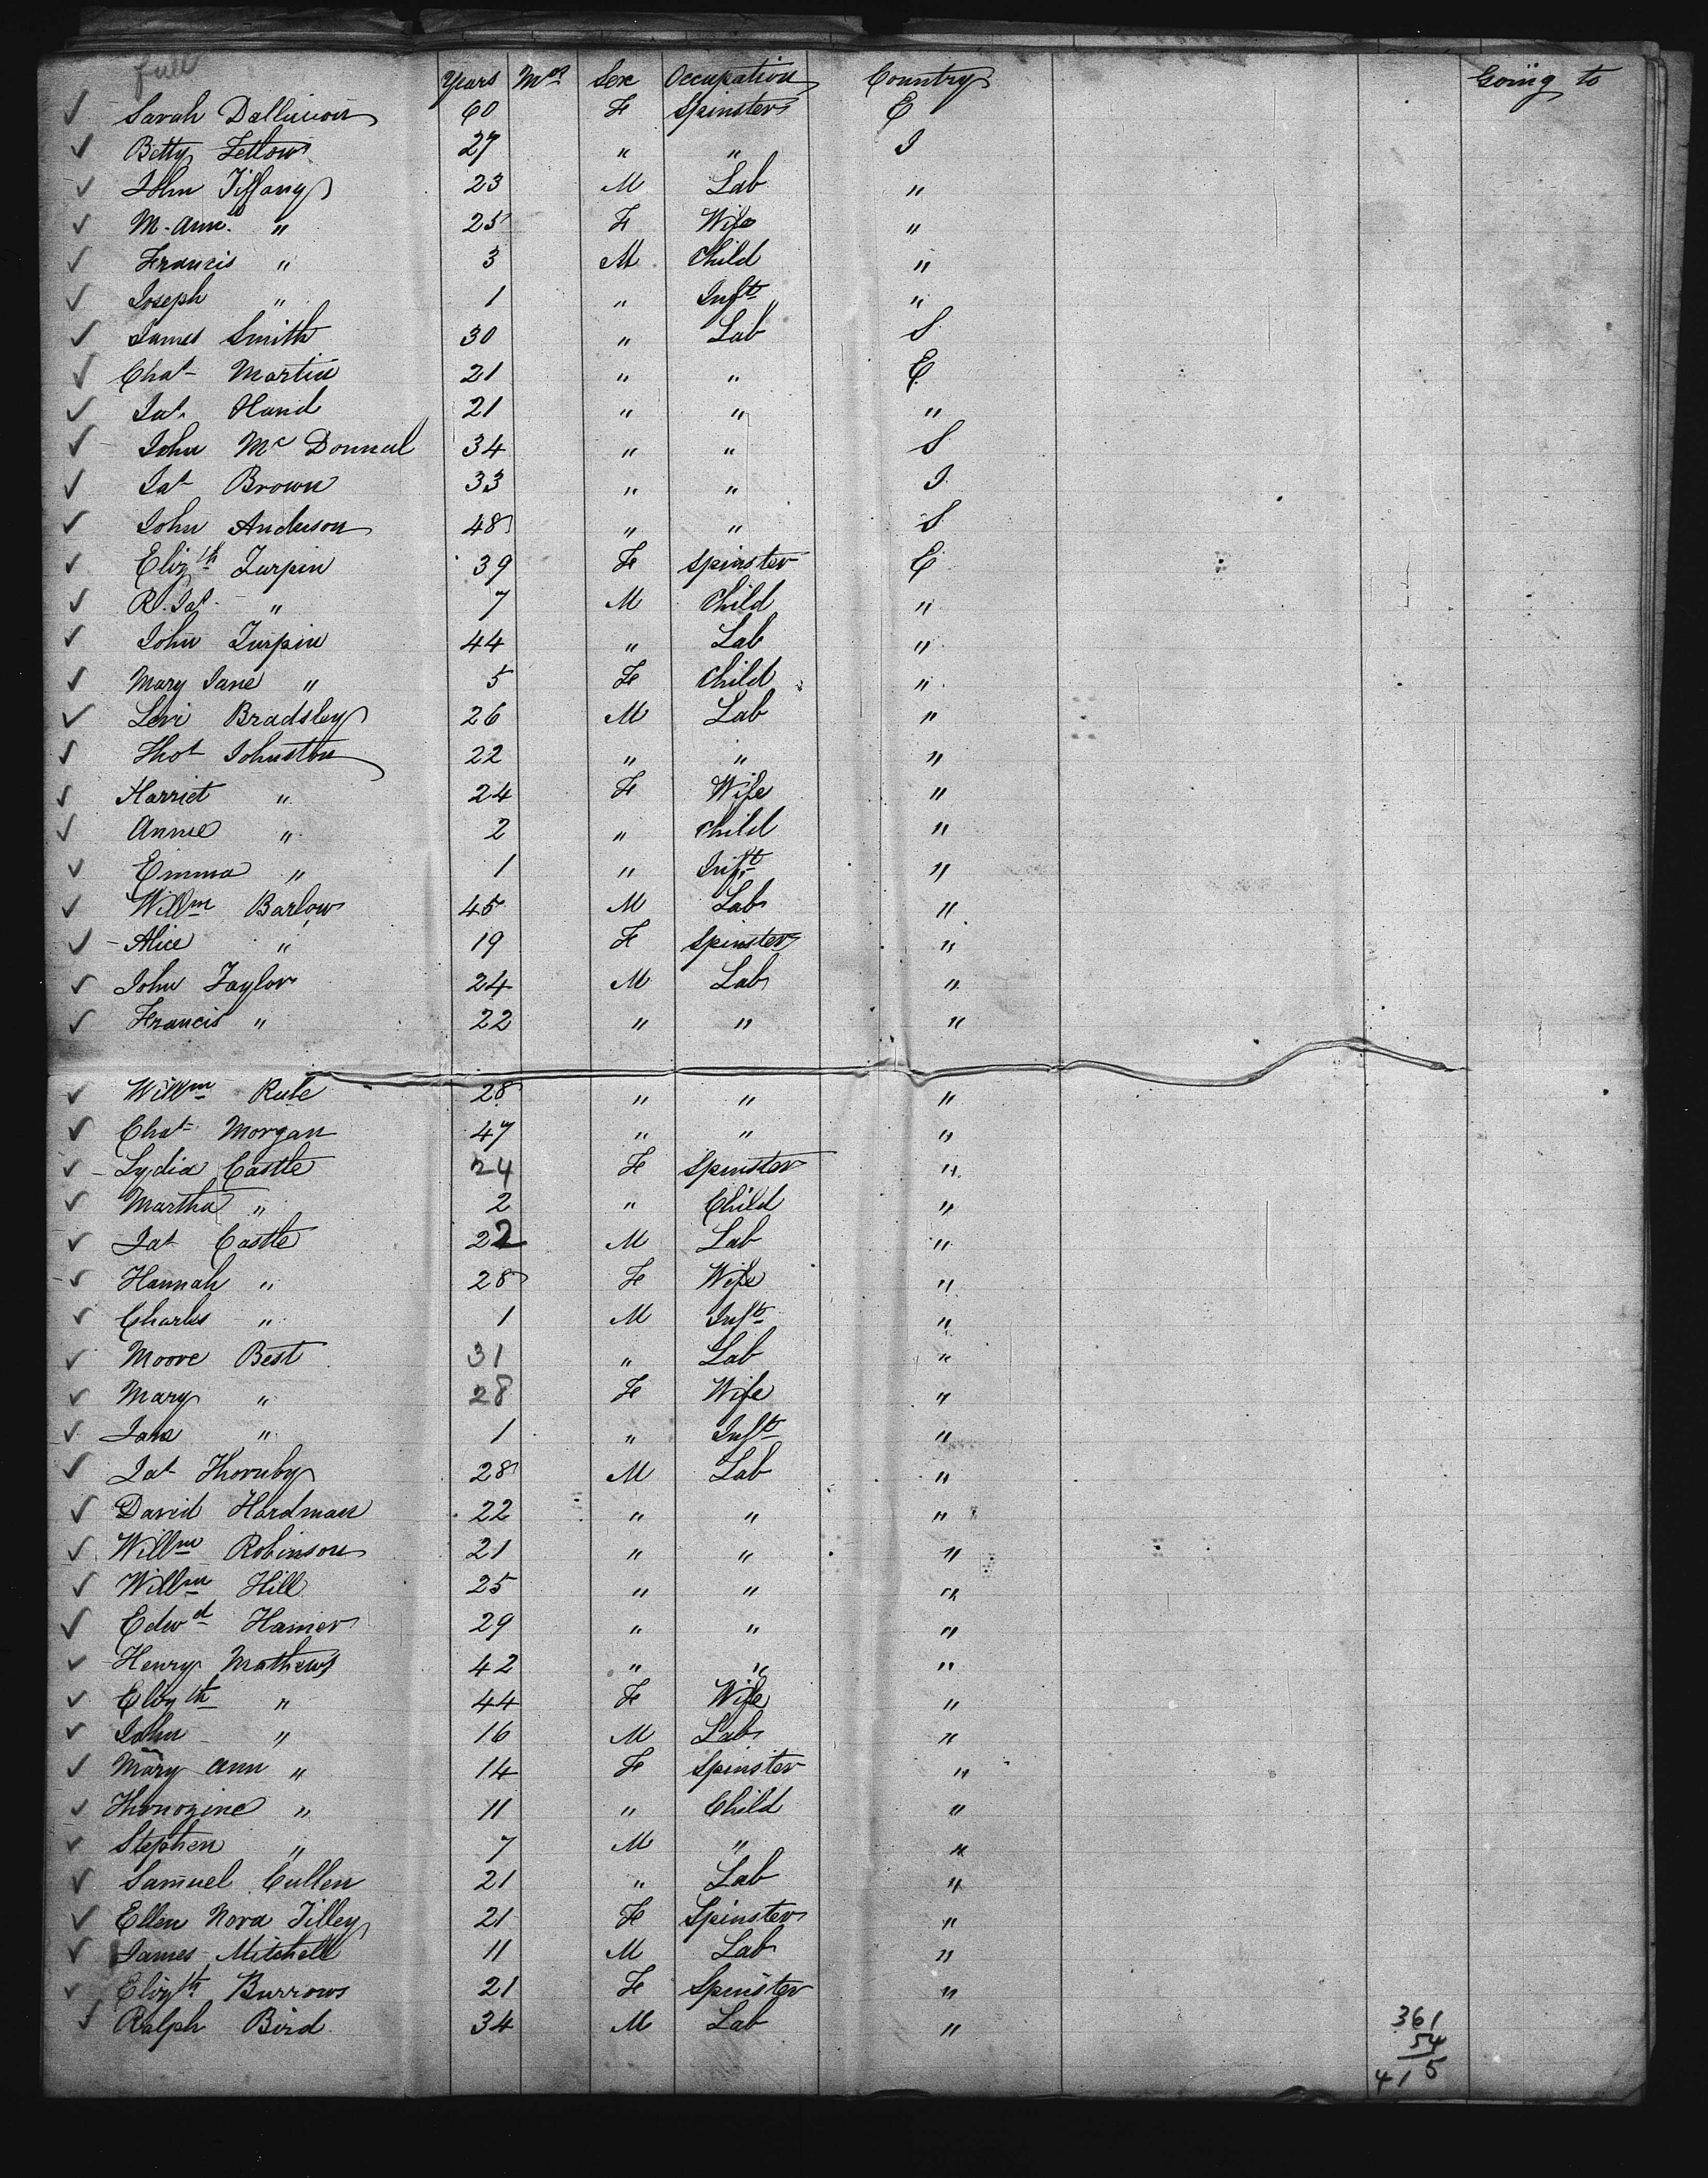 full
Years Mos Sex Occupation Country Going to
Sarah Dallinson 60 Fe Spinster E
Betty Fellows 27 " " I
John Tiffany 23 M Lab "
M. Ann " 25 Fe Wife "
Francis " 3 M Child "
Joseph " 1 " Inft "
James Smith 30 " Lab S
Chas Martin 21 " " E
Jas Hand 21 " " "
John Mc Donnal 34 " " S
Jas Brown 33 " " I
John Anderson 48 " " S
Elizth Turpin 39 Fe Spinster E
R. Jas " 7 M Child "
John Turpin 44 " Lab "
Mary Jane " 5 Fe Child "
Levi Bradsley 26 M Lab "
Thos Johnston 22 " " "
Harriet " 24 Fe Wife "
Annie " 2 " Child "
Emma " 1 " Inft "
Willm Barlow 45 M Lab "
Alice " 19 Fe Spinster "
John Taylor 24 M Lab "
Francis " 22 " " "
Willm Rule 28 " " "
Chas Morgan 47 " " "
Lydia Castle 24 Fe Spinster "
Martha " 2 " Child "
Jas Castle 22 M Lab "
Hannah " 28 Fe Wife "
Charles " 1 M Inft "
Moore Best 31 " Lab "
Mary " 28 Fe Wife "
Jane " 1 " Inft "
Jas Thornby 28 M Lab "
David Hardman 22 " " "
Willm Robinson 21 " " "
Willm Hill 25 " " "
Edwd Hamer 29 " " "
Henry Mathews 42 " " "
Elizth " 44 Fe Wife "
John " 16 M Lab "
Mary Ann " 14 Fe Spinster "
Thonozine " 11 " Child "
Stephen " 7 M " "
Samuel Cullen 21 " Lab "
Ellen Nora Tilley 21 Fe Spinster "
James Mitchell 11 M Lab "
Elizth Burrows 21 Fe Spinster "
Ralph Bird 34 M Lab "
361
54
415